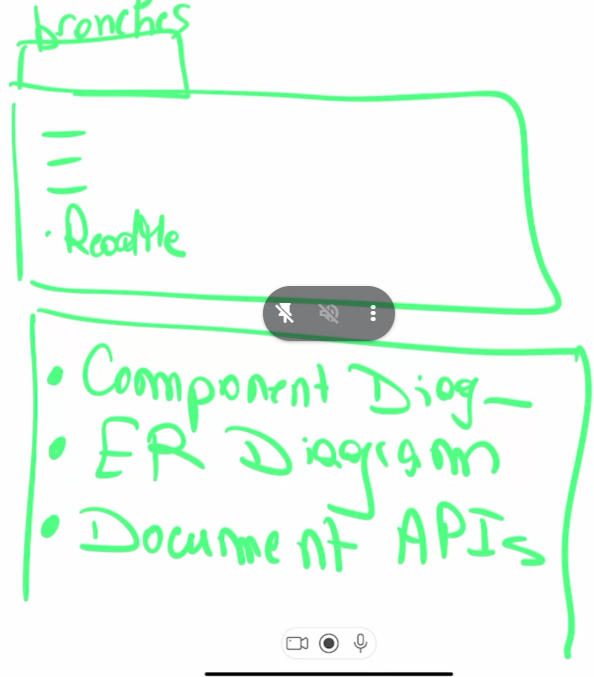 branches
• ReadMe
• Component Diag_
• ER Diagram
• Document APIs